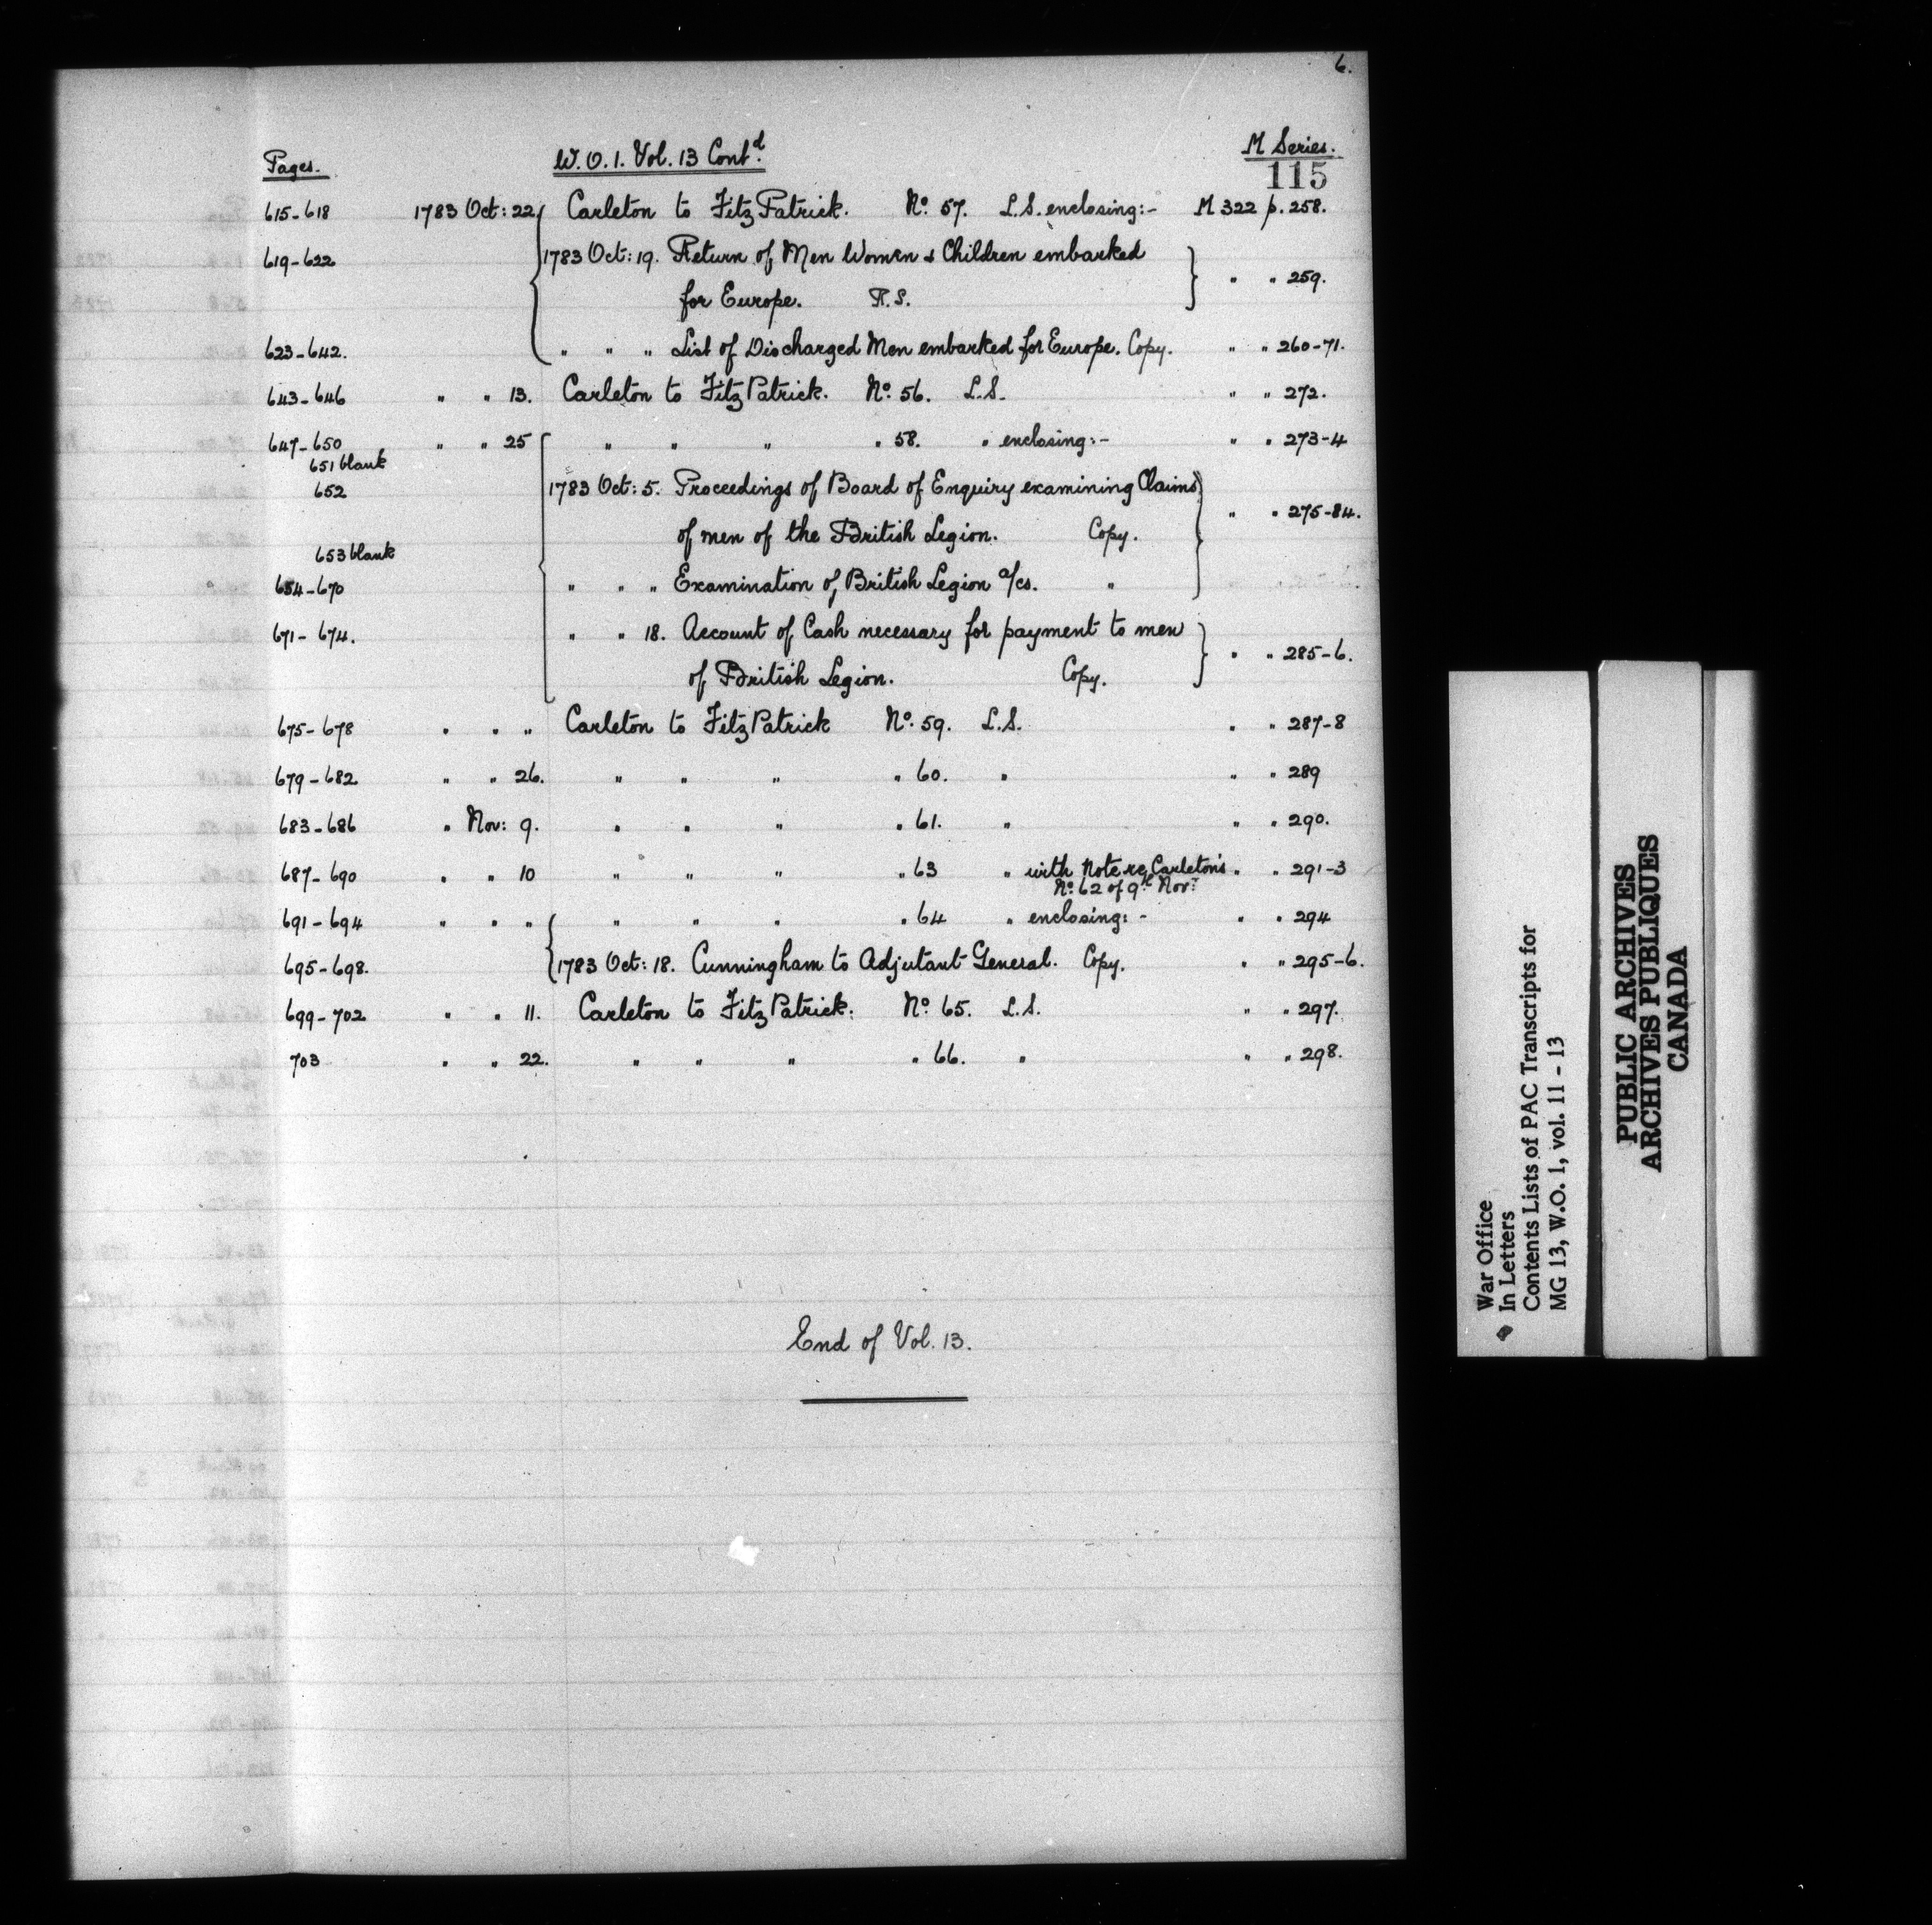 6.
Pages. W.O.1. Vol. 13 Contd. M Series.
115
615-618 1783 Oct: 22 Carleton to FitzPatrick. No. 57. L.S. enclosing:- M 322 p. 258.
619-622 1783 Oct: 19. Return of Men Women & Children embarked
for Europe. R.S. " " 259.
623-642. " " " List of Discharged Men embarked for Europe. Copy. " " 260-71.
643-646 " " 13. Carleton to FitzPatrick. No. 56. L.S. " " 272.
647-650 " " 25 " " " " 58. " enclosing:- " " 273-4
651 blank
652 1783 Oct: 5. Proceedings of Board of Enquiry examining Claims
of men of the British Legion. Copy. " " 275-84.
653 blank
654-670 " " " Examination of British Legion a/cs. "
671-674. " " 18. Account of Cash necessary for payment to men
of British Legion. Copy. " " 285-6.
675-678 " " " Carleton to FitzPatrick No. 59. L.S. " " 287-8
679-682 " " 26. " " " " 60. " " " 289
683-686 " Nov: 9. " " " " 61. " " " 290.
687-690 " " 10 " " " " 63 " with Note re Carleton's " " 291-3
No. 62 of 9th Novr.
691-694 " " " " " " " 64 " enclosing:- " " 294
695-698. 1783 Oct: 18. Cunningham to Adjutant General. Copy. " " 295-6.
699-702 " " 11. Carleton to FitzPatrick. No. 65. L.S. " " 297.
703 " " 22. " " " " 66. " " " 298.
End of Vol. 13.
War Office
In Letters
Contents Lists of PAC Transcripts for
MG 13, W.O. 1, vol. 11 - 13
PUBLIC ARCHIVES
ARCHIVES PUBLIQUES
CANADA